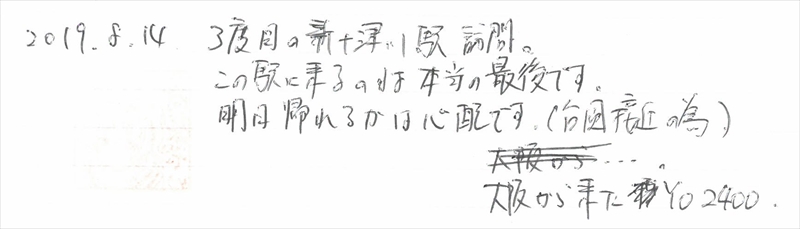 2019.8.14 3度目の新十津川駅 訪問。
この駅に来るのは本当の最後です。
明日帰れるかは心配です。(台風接近の為)
大阪から…。
大阪から来た YO 2400.